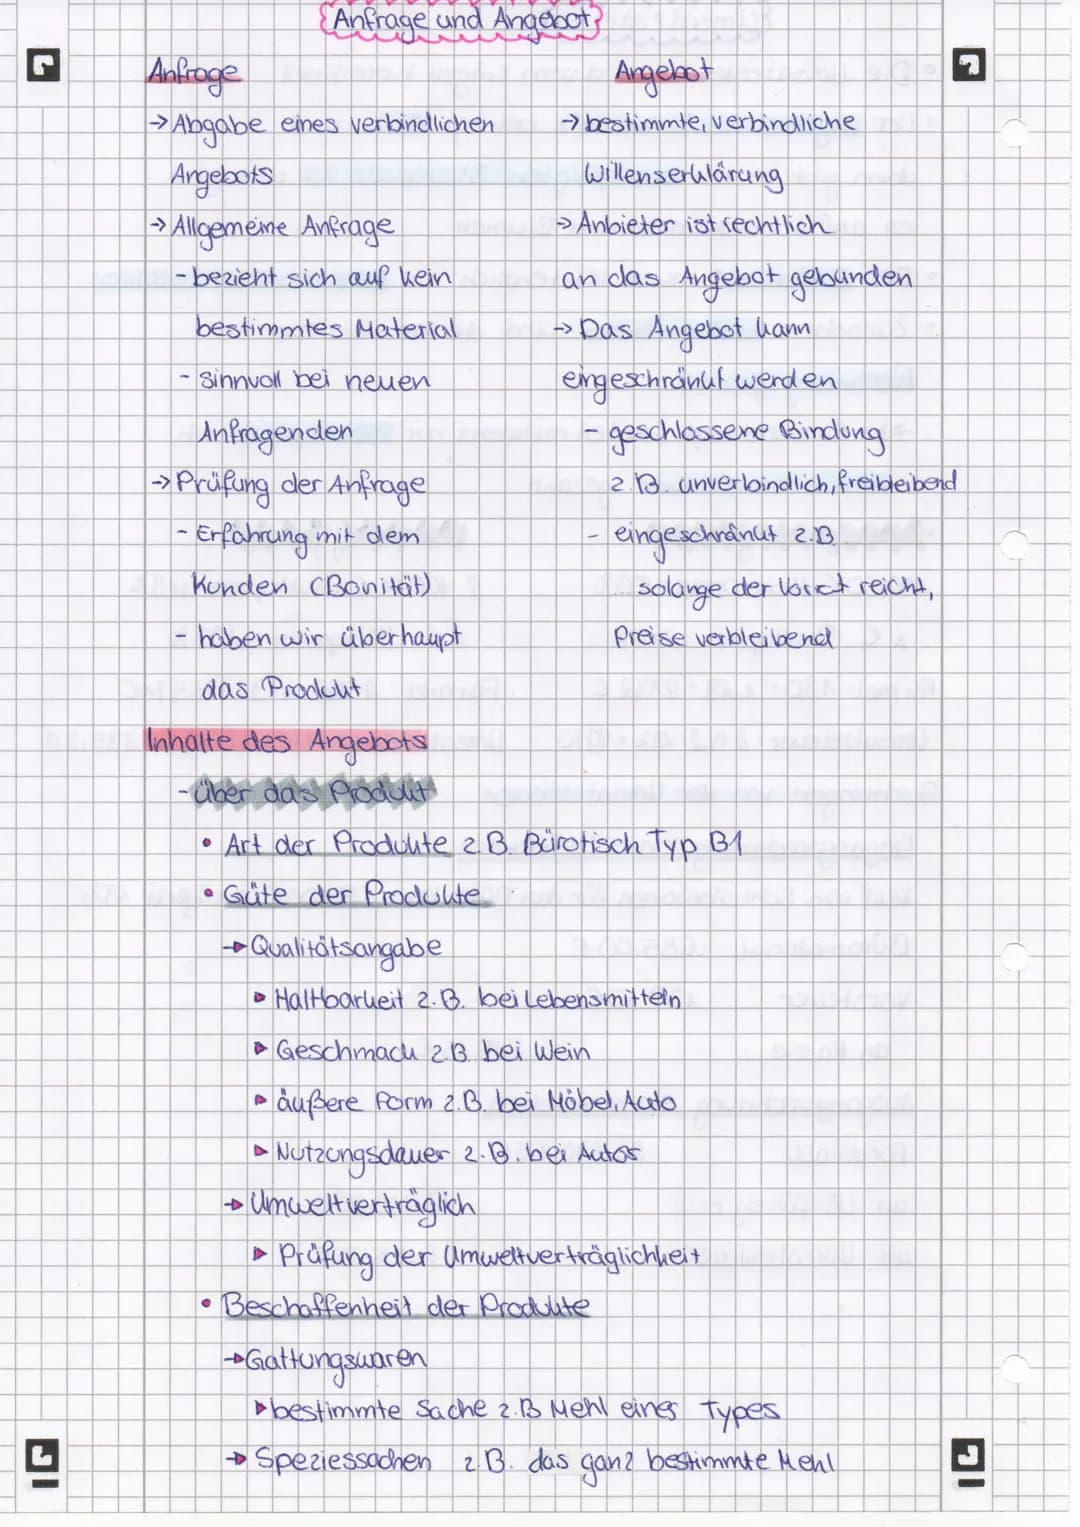 Anfrage und Angebot
Anfrage
→ Abgabe eines verbindlichen
Angebots
→ Allgemeine Anfrage
- bezieht sich auf kein
bestimmtes Material
- sinnvoll bei neuen
Anfragenden
→ Prüfung der Anfrage
- Erfahrung mit dem
Kunden (Bonität)
- haben wir überhaupt
das Produkt
Angebot
→ bestimmte, verbindliche
Willenserklärung
→ Anbieter ist rechtlich
an das Angebot gebunden
→ Das Angebot kann
eingeschränkt werden
- geschlossene Bindung
z.B. unverbindlich, freibleibend
- eingeschränkt z.B.
solange der Vorrat reicht,
Preise verbleibend
Inhalte des Angebots
- über das Produkt
• Art der Produkte z.B. Bürotisch Typ B1
• Güte der Produkte
→ Qualitätsangabe
▸ Haltbarkeit z.B. bei Lebensmitteln
▸ Geschmack z.B. bei Wein
▸ äußere Form z.B. bei Möbel, Auto
▸ Nutzungsdauer z.B. bei Autos
→ Umweltverträglich
▸ Prüfung der Umweltverträglichkeit
• Beschaffenheit der Produkte
→ Gattungswaren
▸ bestimmte Sache z.B Mehl eines Types
→ Speziessachen z.B. das ganz bestimmte Mehl